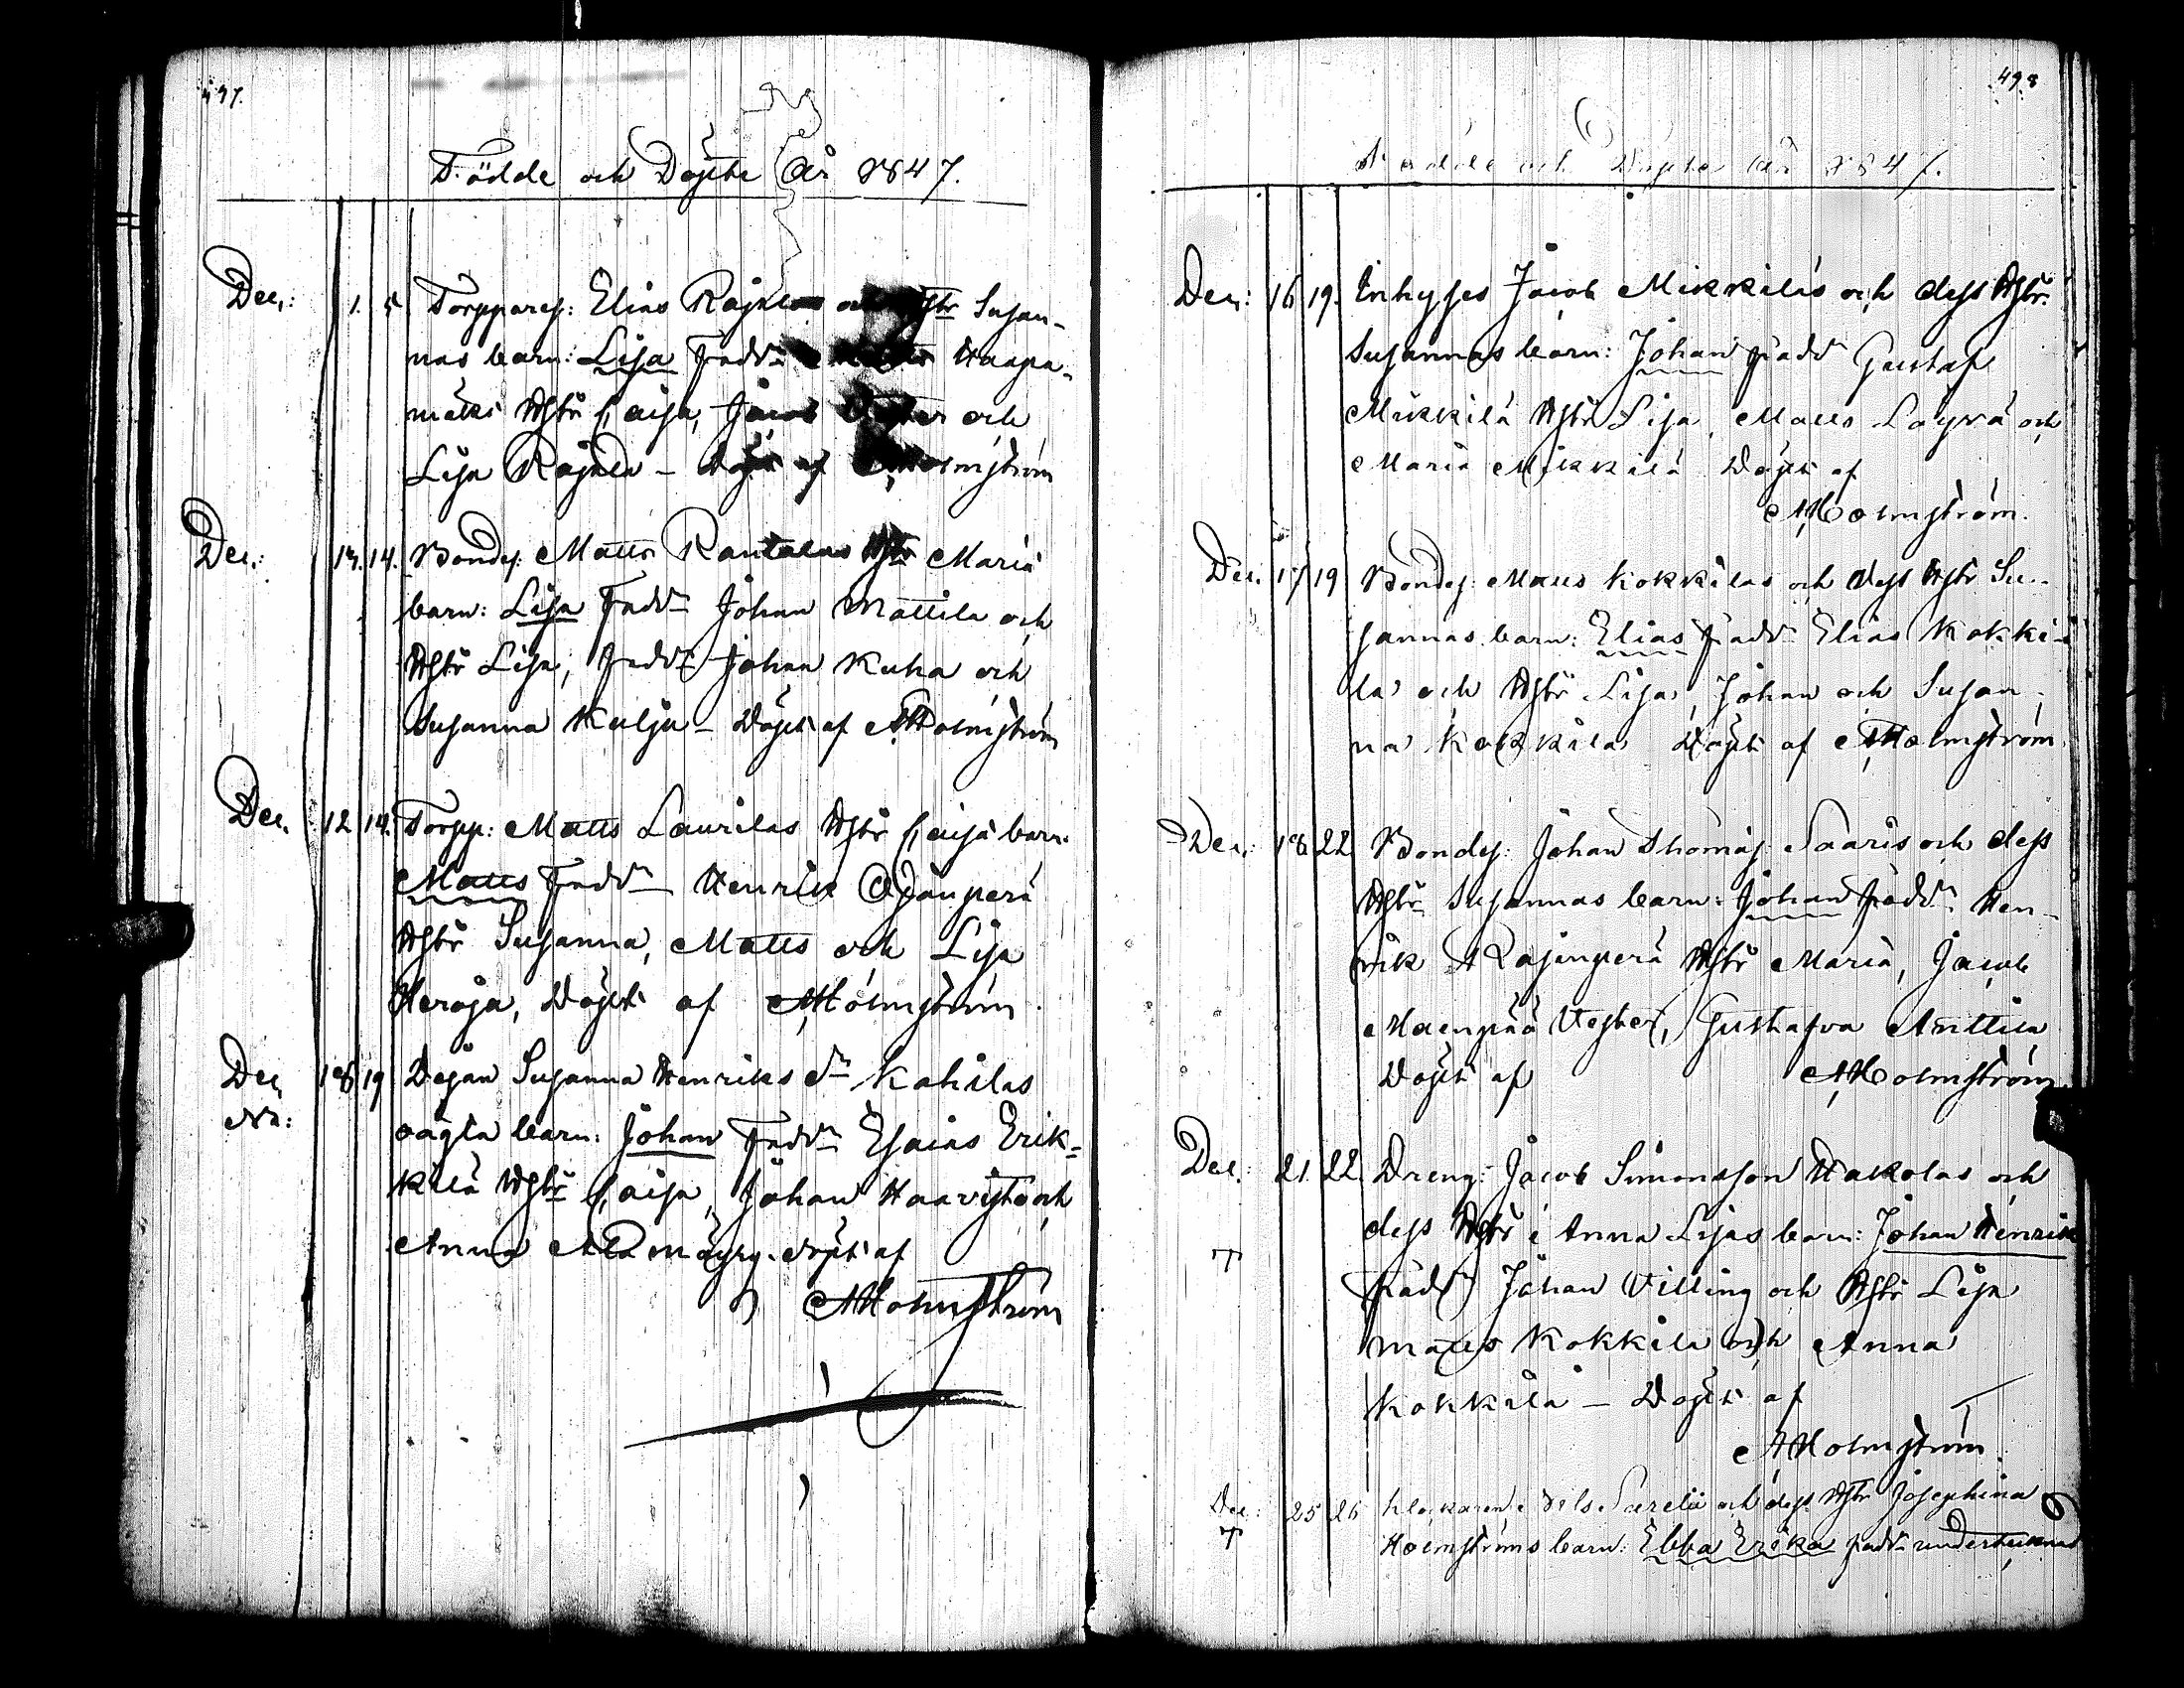 497.
Födde och Döpte År 1847.
Dec: 1. 5. Torpparen: Elias Rajala och Hstr Susan-
nas barn: Lisa Fadd: Haapa-
mäki Hstr Caisa, Jacob och
Lisa Rajala – döpt af AHolmström
Dec: 13. 14. Bonden: Matts Rantalas Hstr Maria
barn: Lisa Fadd: Johan Mattila och
Hstr Lisa, Fadd: Johan Kuha och
Susanna Kulju – Döpt af AHolmström
Dec. 12 14. Torpp: Matts Laurilas Hstr Caisa barn:
Matts Fadd: Henrik Ojanperä
Hstr Susanna, Matts och Lisa
Heroja, Döpt af AHolmström.
Dec 18 19 Dejan Susanna Henriks dr Kahilas
No: oägta barn: Johan Fadd: Esaias Erik-
kilä Hstr Caisa, Johan Haavisto och
Anna Ala mäyry. döpt af
AHolmström
498
Födde och Döpte År 1847.
Dec: 16 19. Inhyses Jacob Mikkiläs och dess Hstr.
Susannas barn: Johan Fadd Gustaf
Mikkilä Hstr Lisa, Matts Löyvä och
Maria Mikkilä Döpt af
AHolmström.
Dec. 17 19 Bonden: Matts Kokkilas och dess Hstr Su-
sannas barn: Elias Fadd Elias Kokki-
la och Hstr Lisa, Johan och Susan-
na Kokkila Döpt af AHolmström.
Dec: 18 22 Bonden: Johan Thomas: Saaris och dess
Hstr Susannas barn: Johan Fadd: Hen-
rik Rajinperä Hstr Maria, Jacob
Maenpää Vester, Gustafva Anttila
Döpt af AHolmström
Dec: 21. 22. Dreng: Jacob Simonsson Hakolas och
dess Hstr Anna Lisas barn: Johan Henrik
T
Fadd Johan Villing och Hstr Lisa
Matts Kokkila och Anna
Kokkila – Döpt af
AHolmström.
Dec: 25 26 Klockaren Nils Sarelii och dess Hstr Josephina
T Holmströms barn: Ebba Erika Fadd undertecknad